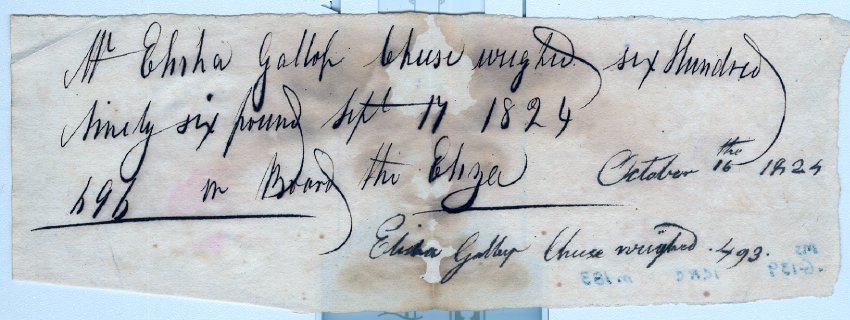 Mr Elisha Gallop Chuse weighed six Hundred
Ninety six pound Sept 17 1824
696 on Board the Eliza
October 16 the 1824
Elisha Gallop Chuse weighed 493.